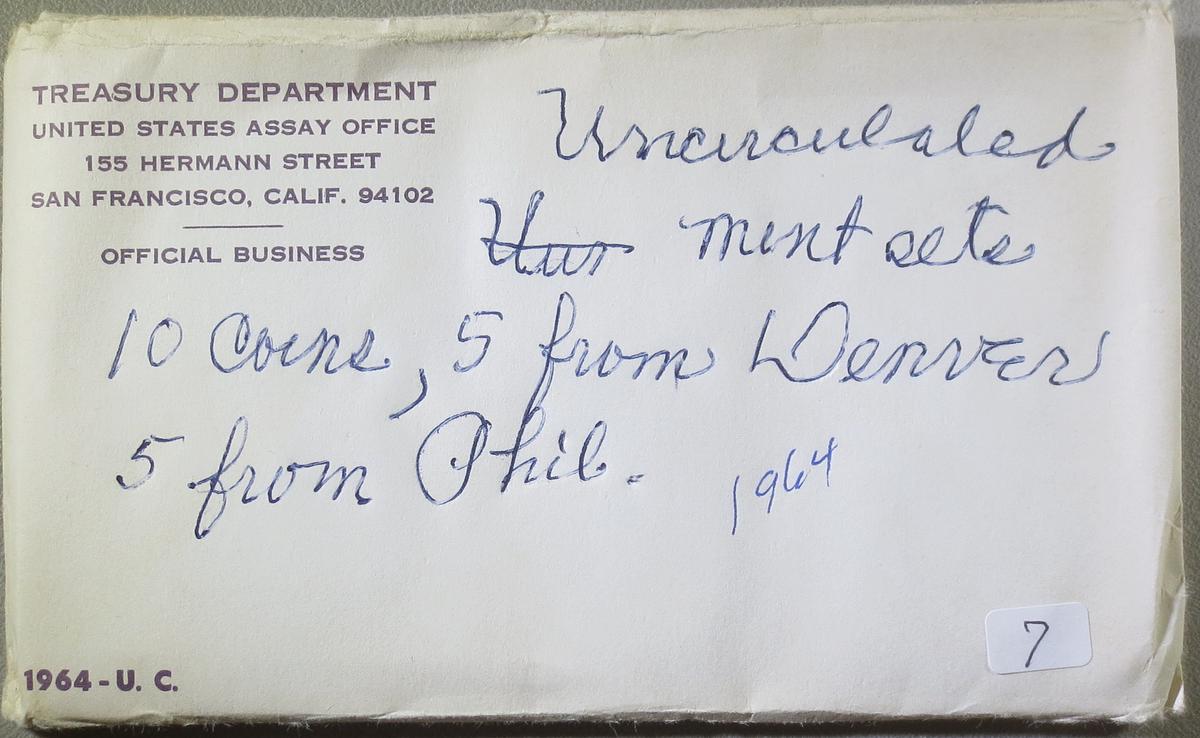 TREASURY DEPARTMENT
UNITED STATES ASSAY OFFICE
155 HERMANN STREET
SAN FRANCISCO, CALIF. 94102
OFFICIAL BUSINESS
Uncirculated
mint sets
10 Coins, 5 from Denver
5 from Phil.
1964
7
1964 - U. C.